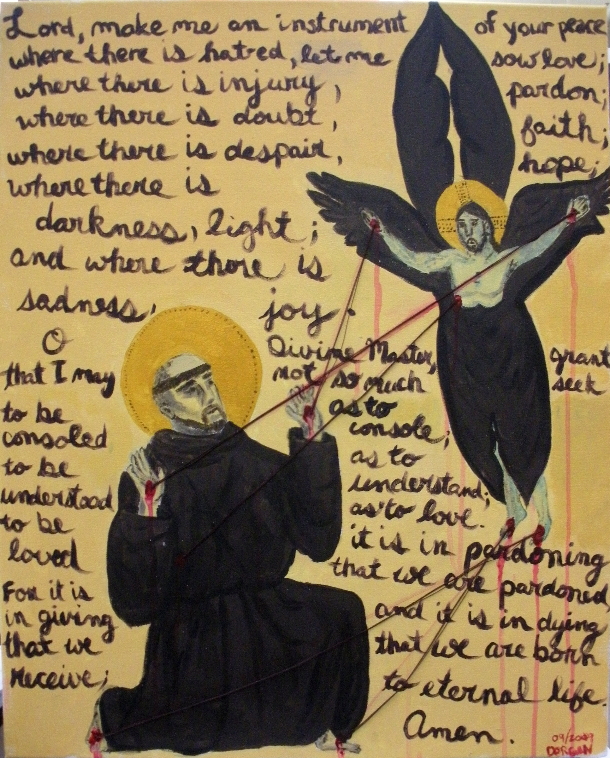 Lord, make me an instrument of your peace
where there is hatred, let me sow love;
where there is injury, pardon;
where there is doubt, faith,
where there is despair, hope;
where there is
darkness, light;
and where there is
sadness, joy.
O Divine Master, grant
that I may not so much seek
to be consoled as to console;
to be understood as to understand;
to be loved as to love.
For it is in giving that we receive;
it is in pardoning
that we are pardoned
and it is in dying
that we are born
to eternal life.
Amen.
09/2009
DORGAN